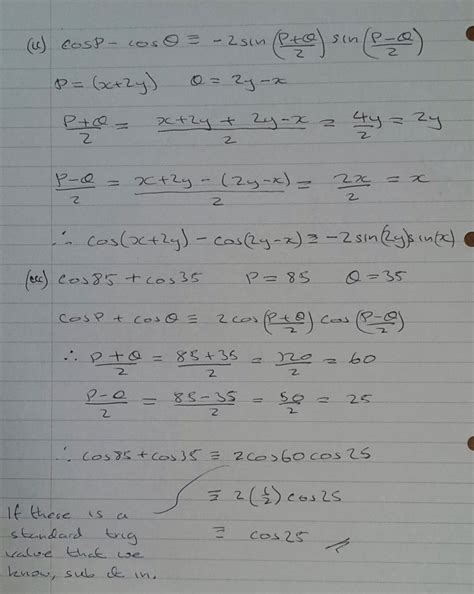 (ii) cosP - cosQ ≡ -2sin(P+Q/2) sin(P-Q/2)
P = (x+2y) Q = 2y-x
P+Q/2 = x+2y + 2y-x/2 = 4y/2 = 2y
P-Q/2 = x+2y - (2y-x)/2 = 2x/2 = x
∴ cos(x+2y) - cos(2y-x) ≡ -2sin(2y)sin(x)
(iii) cos85 + cos35 P = 85 Q = 35
cosP + cosQ ≡ 2cos(P+Q/2) cos(P-Q/2)
∴ P+Q/2 = 85+35/2 = 120/2 = 60
P-Q/2 = 85-35/2 = 50/2 = 25
∴ cos85 + cos35 ≡ 2cos60cos25
≡ 2(1/2)cos25
≡ cos25
If there is a
standard trig
value that we
know, sub it in.